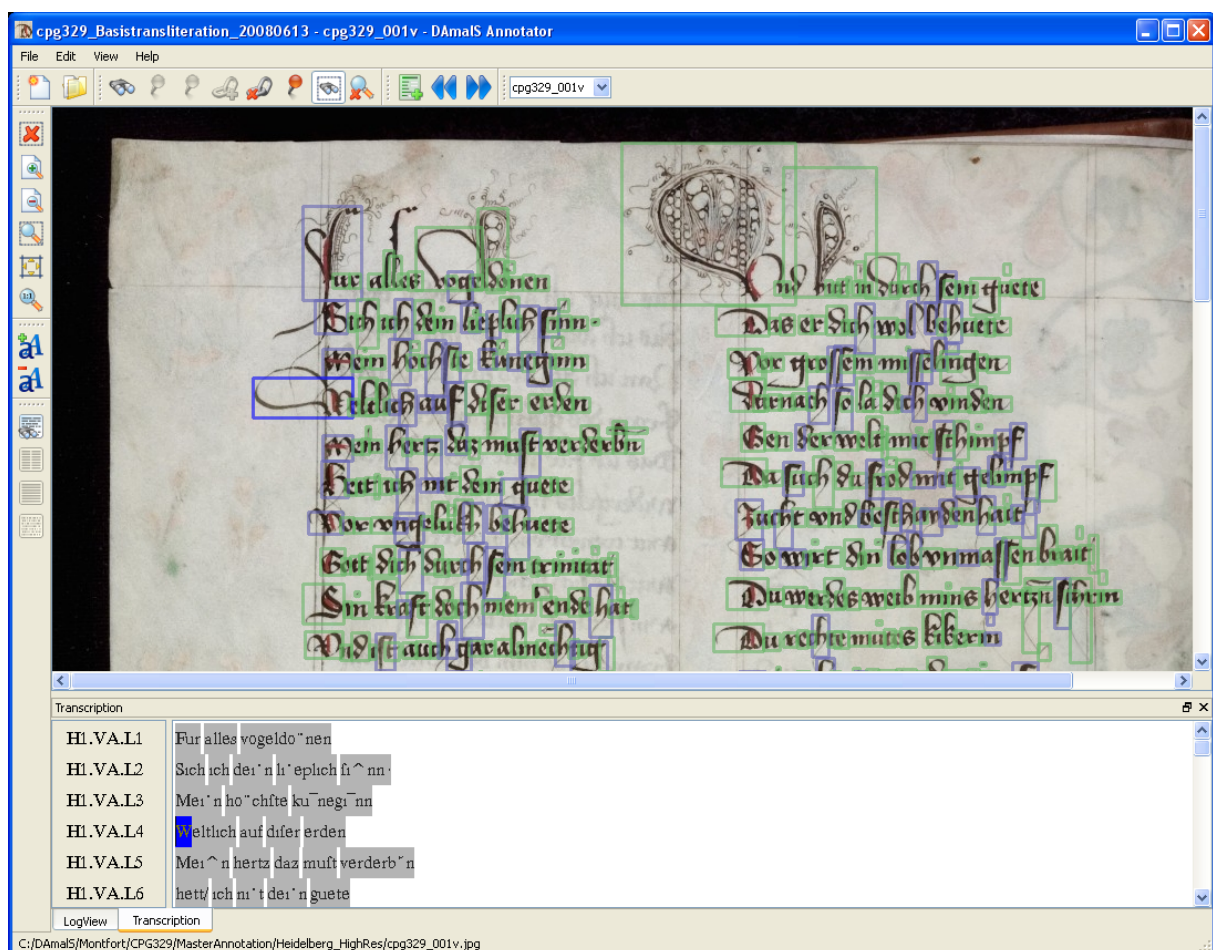 cpg329_Basistransliteration_20080613 - cpg329_001v - DAmalS Annotator
File Edit View Help
cpg329_001v
Fur alles vogeldonen
Sich ich dein lieplich sinn·
Mein hochste kuneginn
Weltlich auf diser erden
Mein hertz daz must verderbn
hett ich nit dein guete
Vor vngelukh behuete
Gott dich durch sein trinitat
Sin kraft doch niem ende hat
Vnd ist auch gar almechtig
Vnd but in durch sein guete
Das er dich wol behuete
Vor grossem misselingen
Darnach so la dich vinden
Gen der welt mit schimpf
Da such du frod mit gelimpf
Zucht vnd beschaydenhait
So wirt din lob vnmassen brait
Du werdes weib mins hertzn
Du rechte mutes
Transcription
H1.VA.L1 Fur alles vogeldo¨nen
H1.VA.L2 Sıch ıch deı˙n lı˙eplıch ſı^nn·
H1.VA.L3 Meı˙n ho¨chſte ku¯negı¯nn
H1.VA.L4 Weltlıch auf dıſer erden
H1.VA.L5 Meı^n hertz daz muſt verderb˜n
H1.VA.L6 hett/ ıch nı˙t deı˙n guete
LogView Transcription
C:/DAmalS/Montfort/CPG329/MasterAnnotation/Heidelberg_HighRes/cpg329_001v.jpg